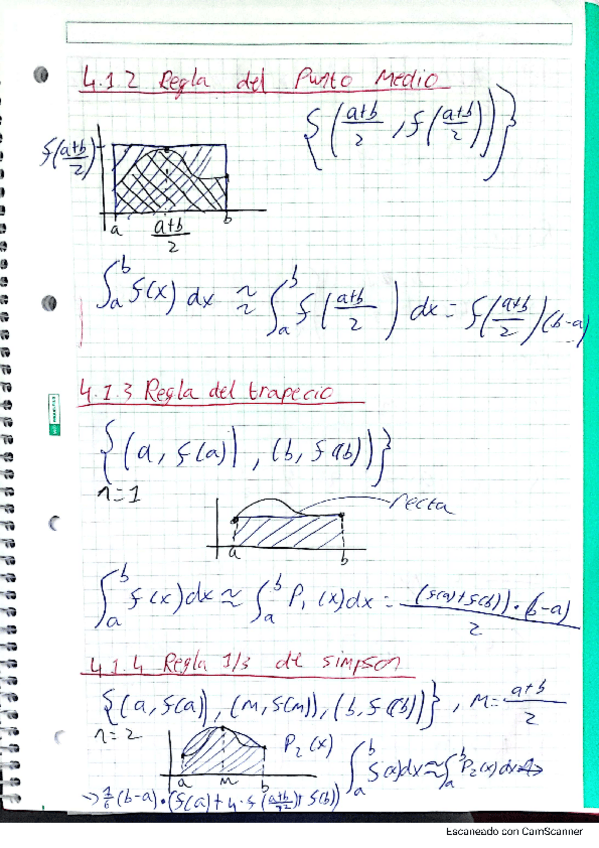 4.1.2 Regla del Punto Medio
{(a+b/2, f(a+b/2))}
f(a+b/2)
a a+b/2 b
∫_a^b f(x) dx ≈ ∫_a^b f(a+b/2) dx = f(a+b/2)(b-a)
4.1.3 Regla del trapecio
{(a, f(a)), (b, f(b))}
n=1
recta
a b
∫_a^b f(x)dx ≈ ∫_a^b P₁(x)dx = (f(a)+f(b))·(b-a)/2
4.1.4 Regla 1/3 de simpson
{(a, f(a)), (m, f(m)), (b, f(b))}, m=a+b/2
n=2
P₂(x)
a m b
∫_a^b f(x)dx ≈ ∫_a^b P₂(x)dx →
→ 1/6 (b-a)·(f(a)+4·f(a+b/2)+f(b))
Escaneado con CamScanner